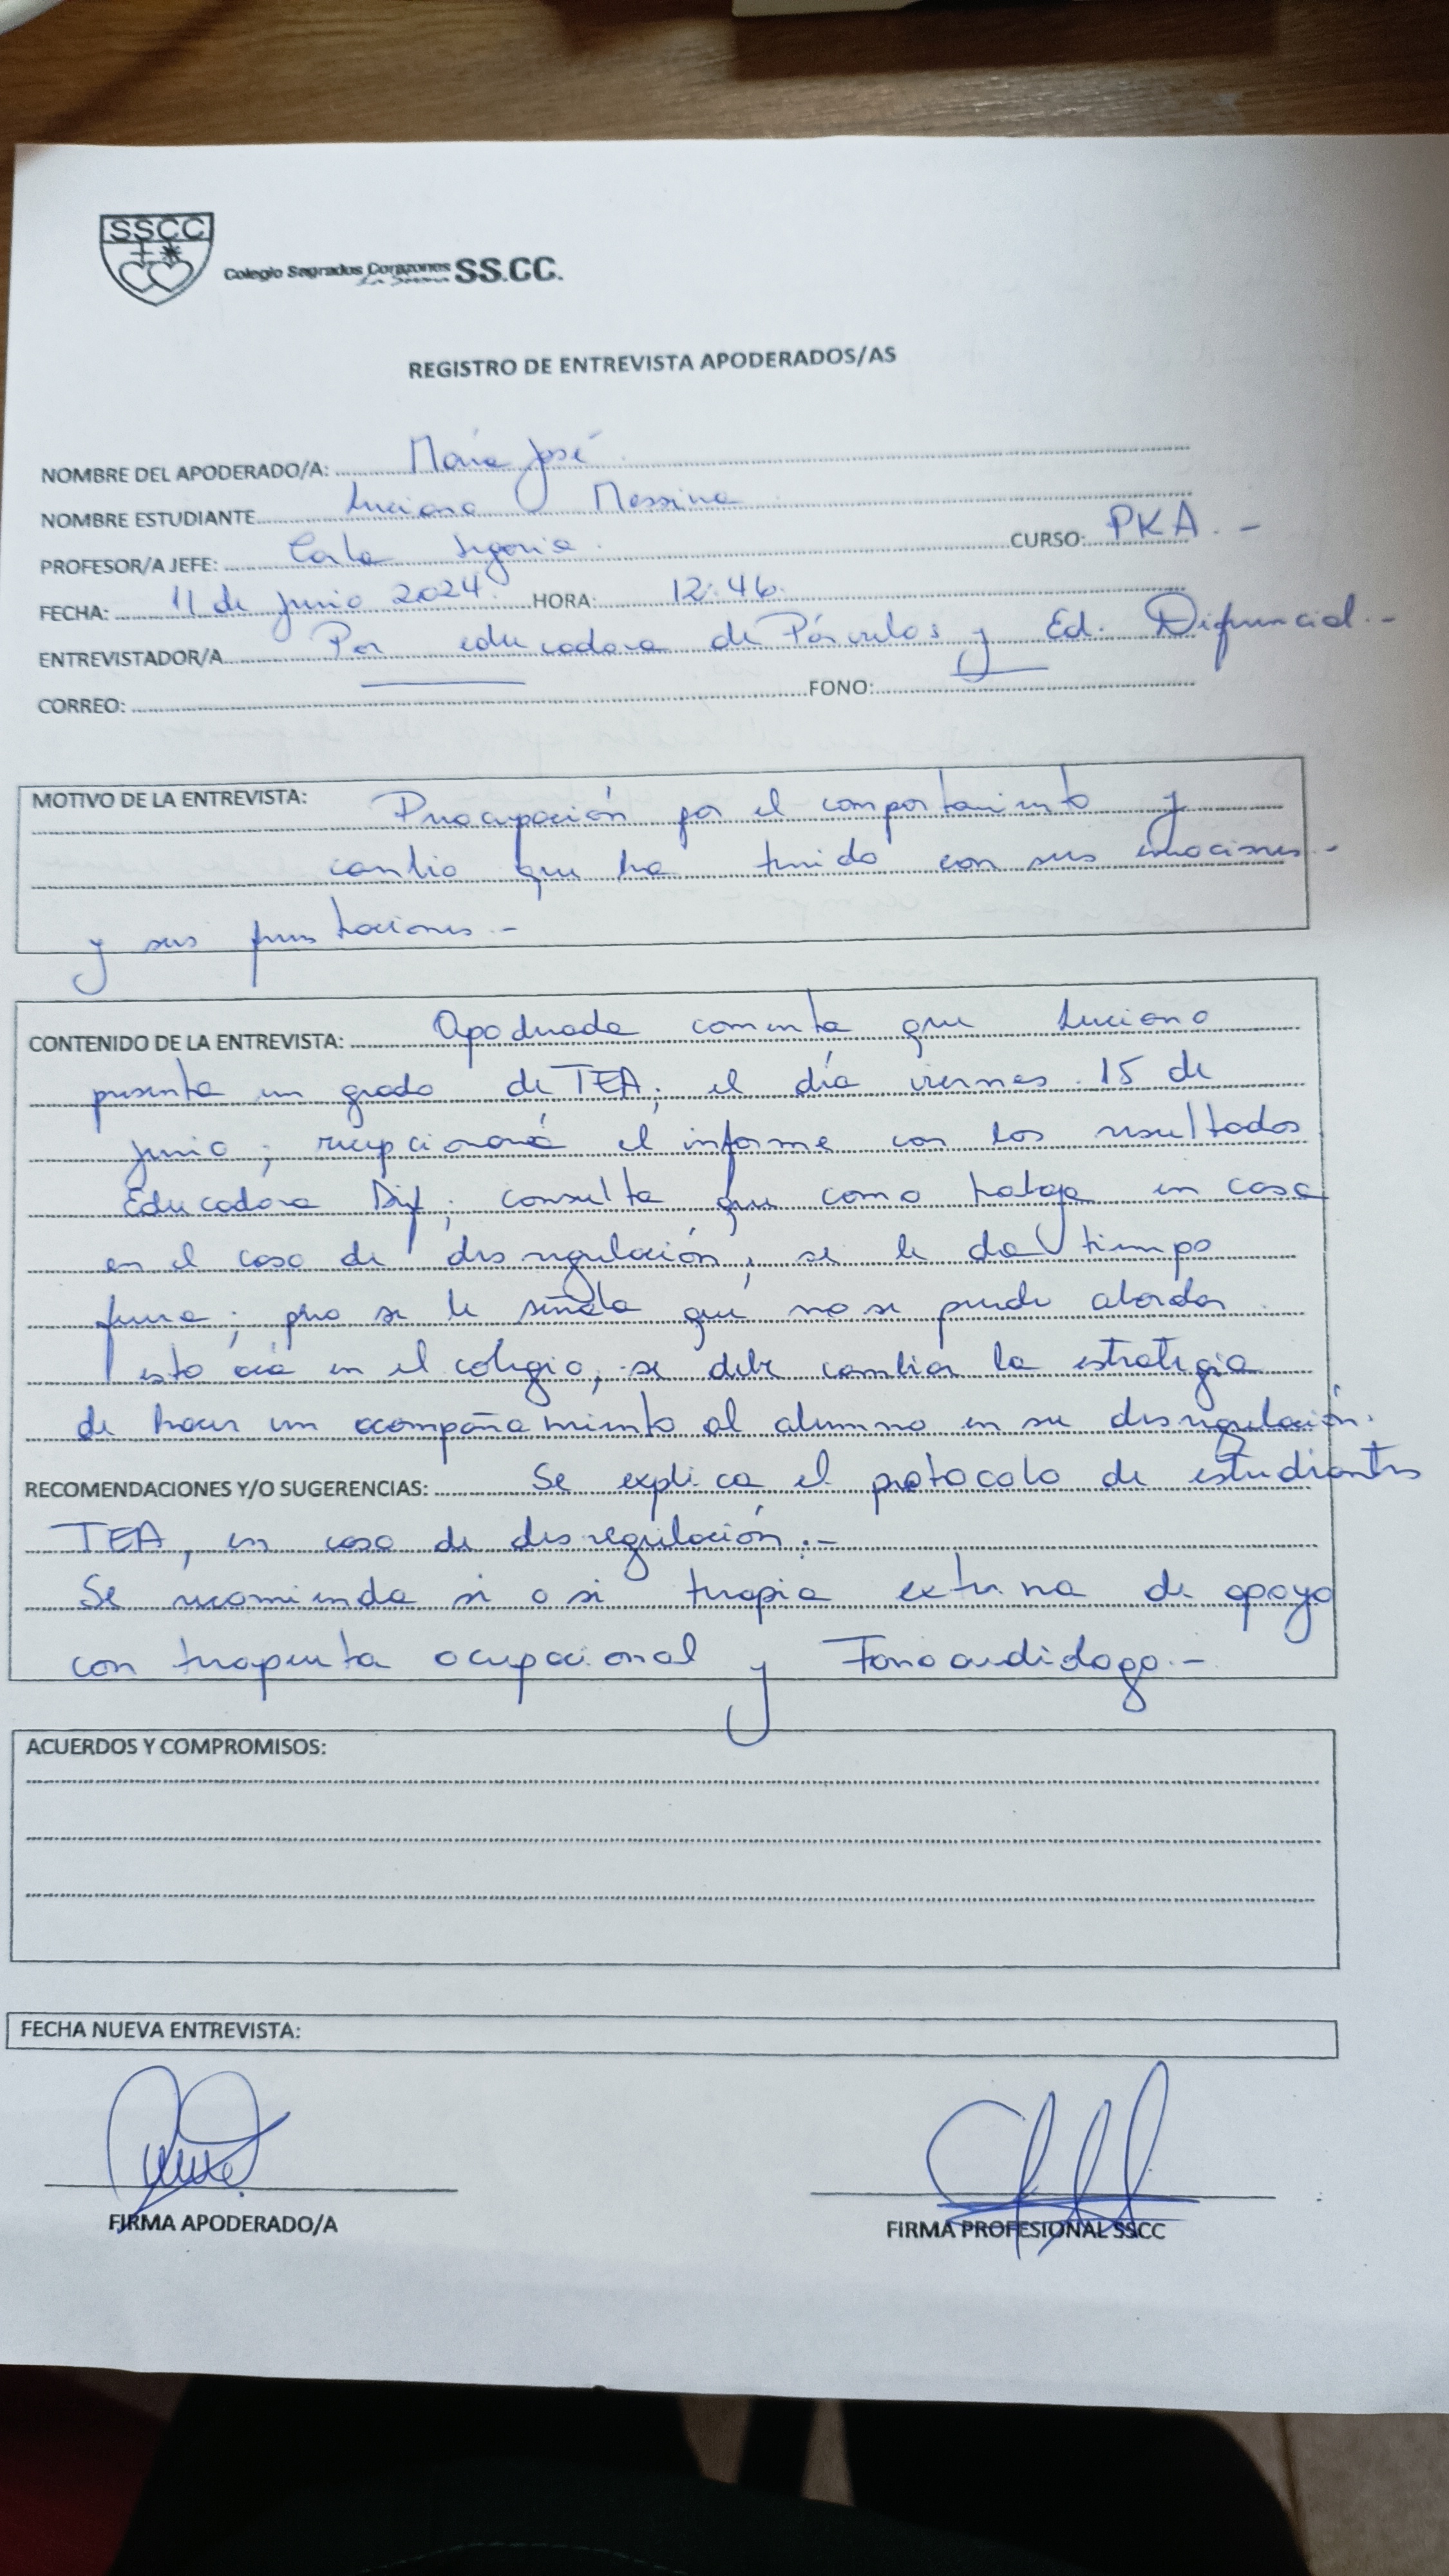 SSCC
Colegio Sagrados Corazones SS.CC.
La Serena
REGISTRO DE ENTREVISTA APODERADOS/AS
NOMBRE DEL APODERADO/A: María José
NOMBRE ESTUDIANTE Luciano Messina
PROFESOR/A JEFE: Carla Segovia. CURSO: PKA.-
FECHA: 11 de junio 2024. HORA: 12:46.
ENTREVISTADOR/A Por educadora de Párvulos y Ed. Diferencial.-
CORREO: FONO:
MOTIVO DE LA ENTREVISTA: Preocupación por el comportamiento y
cambio que ha tenido con sus emociones.-
y sus frustraciones.-
CONTENIDO DE LA ENTREVISTA: Apoderada comenta que Luciano
presenta un grado de TEA; el día viernes 15 de
junio; recepcionará el informe con los resultados
Educadora Dif; consulta que como trabaja en casa
en el caso de desregulación, se le da tiempo
fuera; pero se le señala que no se puede abordar
esto acá en el colegio; se debe cambiar la estrategia
de hacer un acompañamiento al alumno en su desregulación.
RECOMENDACIONES Y/O SUGERENCIAS: Se explica el protocolo de estudiantes
TEA, en caso de desregulación.-
Se recomienda si o si terapia externa de apoyo
con terapeuta ocupacional y Fonoaudiologo.-
ACUERDOS Y COMPROMISOS:
FECHA NUEVA ENTREVISTA:
FIRMA APODERADO/A FIRMA PROFESIONAL SSCC